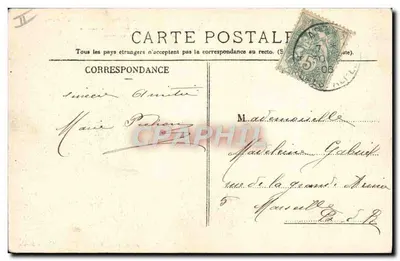 CARTE POSTALE
Tous les pays étrangers n'acceptent pas la correspondance au recto.
CORRESPONDANCE
sincère Amitié
Marie
Mademoiselle
Madeleine
rue de la grande Armée
5 Marseille
B d R
CPARAMA